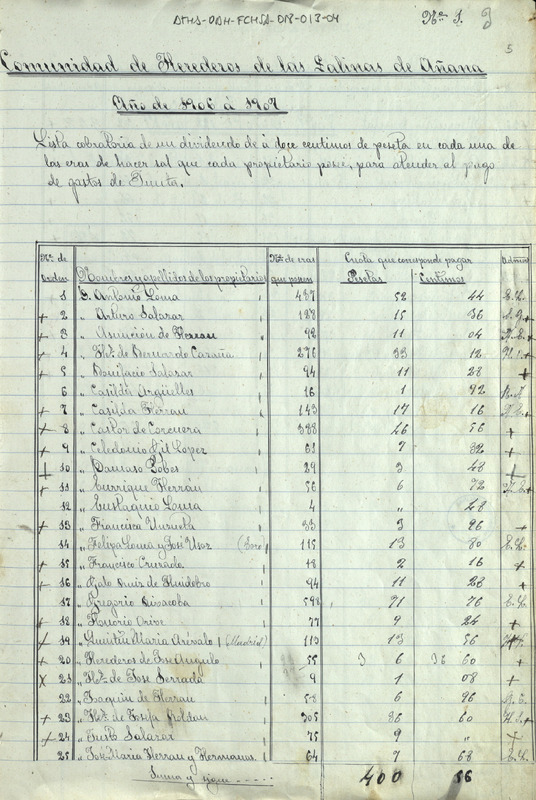 ATHA-DAH-FCHSA-018-013-04
Nº 1.
5
Comunidad de Herederos de las Salinas de Añana
Año de 1906 á 1907
Lista cobratoria de un dividendo de á doce centimos de peseta en cada una de
las eras de hacer sal que cada propietario posee, para atender al pago
de gastos de Junta.
Nº de Orden Nombres y apellidos de los propietarios Nº de eras que poseen Cuota que corresponde pagar Pesetas Centimos Admor
1 D. Antonio Loma 437 52 44
+ 2 " Arturo Salazar 128 15 36 +
+ 3 " Asunción de Herran 92 11 04 +
+ 4 " Hros de Bernardo Cazaña 276 33 12 +
+ 5 " Bonifacio Salazar 94 11 28 +
6 " Casilda Argüelles 16 1 92
+ 7 " Casilda Herran 143 17 16 +
+ 8 " Gaspar de Corcuera 388 46 56 +
+ 9 " Celedonio Gil Lopez 61 7 32 +
+ 10 " Damaso Pobes 29 3 48 +
+ 11 " Enrrique Herrán 56 6 72 +
12 " Eustaquio Loma 4 " 48
+ 13 " Francisca Unzueta 33 3 96 +
14 " Felipa Loma y José Usoz 115 13 80
+ 15 " Francisco Cruzado 18 2 16 +
+ 16 " Ruiz de Huidobro 94 11 28 +
17 " Gregorio 598 71 76
+ 18 " Honorio Orive 77 9 24 +
+ 19 " Quintin Maria Arévalo (Madrid) 113 13 56
+ 20 " Herederos de José Angulo 55 6 60 +
x 21 " Hros de José Serrada 9 1 08 +
22 " Joaquin de Herran 58 6 96
+ 23 " Hros de Josefa Roldan 305 36 60 +
+ 24 " Justo Salazar 75 9 " +
25 " José Maria Herran y Hermanos 64 7 68
Suma y sigue ----- 400 56